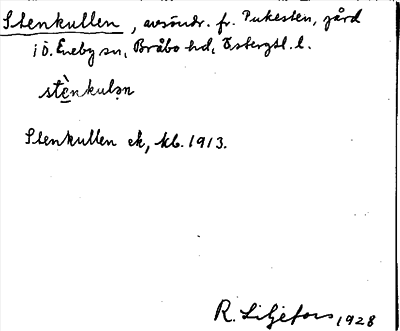 Stenkullen, avsöndr. fr. Pukesten, gård
i Ö. Eneby sn, Bråbo hd, Östergtl. l.
stènkulən
Stenkullen ek, kb. 1913.
R. Liljefors 1928